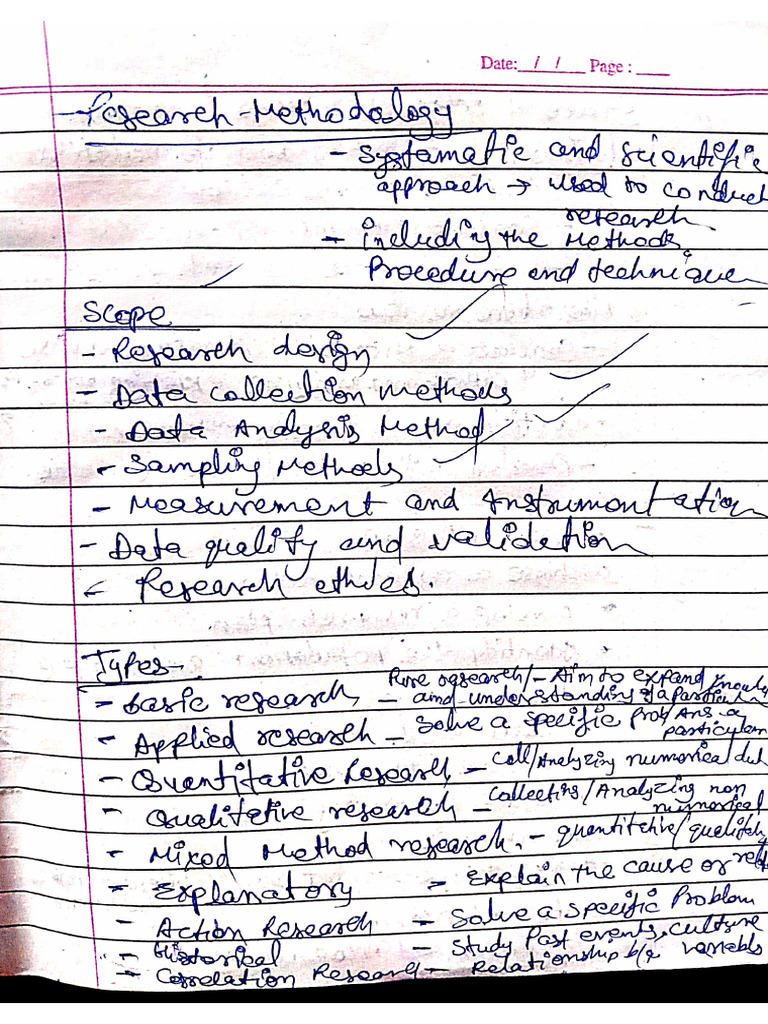 Date: / / Page :
- Research-Methodology
- Systamatic and scientific
approach → used to conduct
research.
- including the Methods,
Procedure and technique
Scope
- Research design
- Data collection methods
- Data Analysis Method
- Sampling Methods
- Measurement and Instrumentation
- Data quality and validation
- Research ethics.
Types -
- basic research - Pure research/- Aim to expand knowle
and understanding of a particular
- Applied research - Solve a specific Prob/Ans. a
particular
- Quantitative Research - Coll/Analyzing numerical dat
- Qualitative research - Collecting/Analyzing non
numerical
- Mixed Method research. - quantitative/qualitative
- Explanatory - Explain the cause or rela
- Action Research - Solve a specific Problem
- Historical - Study Past events, culture
- Correlation Research - Relationship b/w variables